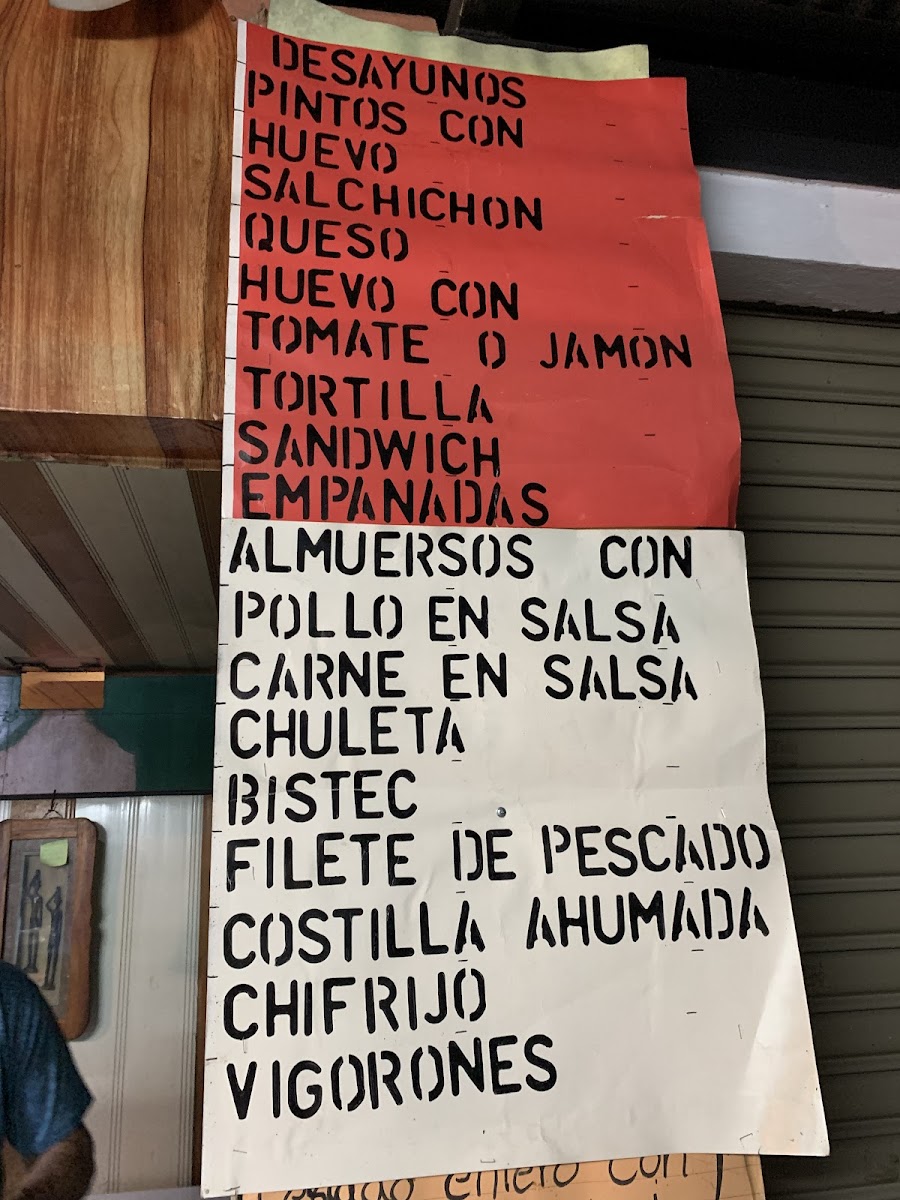 DESAYUNOS
PINTOS CON
HUEVO
SALCHICHON
QUESO
HUEVO CON
TOMATE O JAMON
TORTILLA
SANDWICH
EMPANADAS
ALMUERSOS CON
POLLO EN SALSA
CARNE EN SALSA
CHULETA
BISTEC
FILETE DE PESCADO
COSTILLA AHUMADA
CHIFRIJO
VIGORONES
entero con